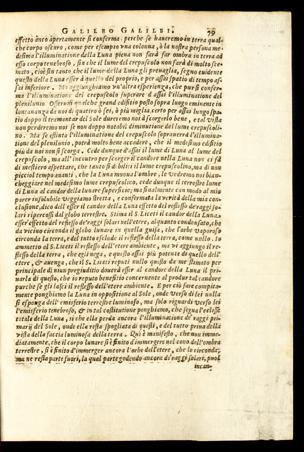 GALILEO GALILEI. 79
effetto anco apertamente si conferma; perche se haueremo in terra qual-
che corpo oscuro, come per essempio vna colonna, ò la nostra persona me-
desima l'illuminatione della Luna piena non farà far ombra in terra ad
essa corpo tenebroso, sin che il lume del crepuscolo non sarà di molto sce-
mato, cioè sin tanto che il lume della Luna gli preuaglia, segno euidente
questo della Luna esser à quello del proprio, e per assai spatio di tempo as-
sai inferiore. Ma aggiunghiamo vn'altra esperienza, che pur ci confer-
mi l'illuminatione del crepuscolo superare d'assai l'illuminatione del
plenilunio. Osserui
lontananza di noi di quattro ò sei, ò più miglia, certo per assai lungo spa-
tio doppo il tramontar del Sole dureremo noi à scorgerlo bene, e tal vista
non perderemo
no. Ma se finita l'illuminatione del crepuscolo soprauerrà l'illumina-
tione del plenilunio, potrà molto bene accadere, che il medesimo edifitio
più da noi non si scorga. Cede dunque d'assai il lume di Luna al lume del
crepuscolo, ma all'incontro per scorger il candor nella Luna non ci fà
di mestiero aspettare, che tanto si debiliti il lume crepuscolino, ma di non
picciol tempo auanti, che la Luna muoua l'ombre, le vedremo noi bian-
cheggiare nel medesimo lume crepuscolino, cede dunque il terrestre lume
di Luna al candor della lunare superficie; ma finalmente con modo al mio
parer insolubile veggiamo stretta, e confermata la verità della mia con-
clusione, dico dell'esser il candor della Luna effetto del reflesso de' raggi so-
lari ripercossi dal globo terrestre. Stima il S. Liceti il candor della Luna
esser effetto del reflesso de' raggi solari nell'etere, alquanto condensato, che
da vicino circonda il globo lunare in quella guisa, che l'orbe vaporoso
circonda la terra, e del tutto esclude il reflesso della terra, come nullo. Io
ammetto al S. Liceti il reflesso dell'etere ambiente, mà ve aggiungo il re-
flesso della terra, che egli nega, e questo assai più potente di quello dell'
etere, &
principale di niun pregiuditio douerà esser al candor della Luna il pri-
uarla di quello, che io reputo beneficio concernente al produr tal candore
purche se gli lasci il reflesso dell'etere ambiente. E per ciò fare compita-
mente ponghiamo la Luna in oppositione al Sole, onde verso di lei nulla
si esponga dell'emisferio terrestre luminoso, ma solo riguardi verso lei
l'emisferio tenebroso, & in tal costitutione ponghiamo, che segua l'eclisse
totale della Luna, si che ella perda ancora l'illuminatione de' raggi pri-
marij del Sole, onde ella resta spogliata di questi, e del tutto priua della
vista della faccia luminosa della terra. Quì è manifesto, che non imme-
diatamente, che il corpo lunare si è finito d'immergere nel cono dell'ombra
terrestre, si è finito d'immerger ancora l'orbe dell'etere, che lo circonda,
ma ne resta parte fuori, la qual parte godendo ancora de' raggi solari, puol
incan-